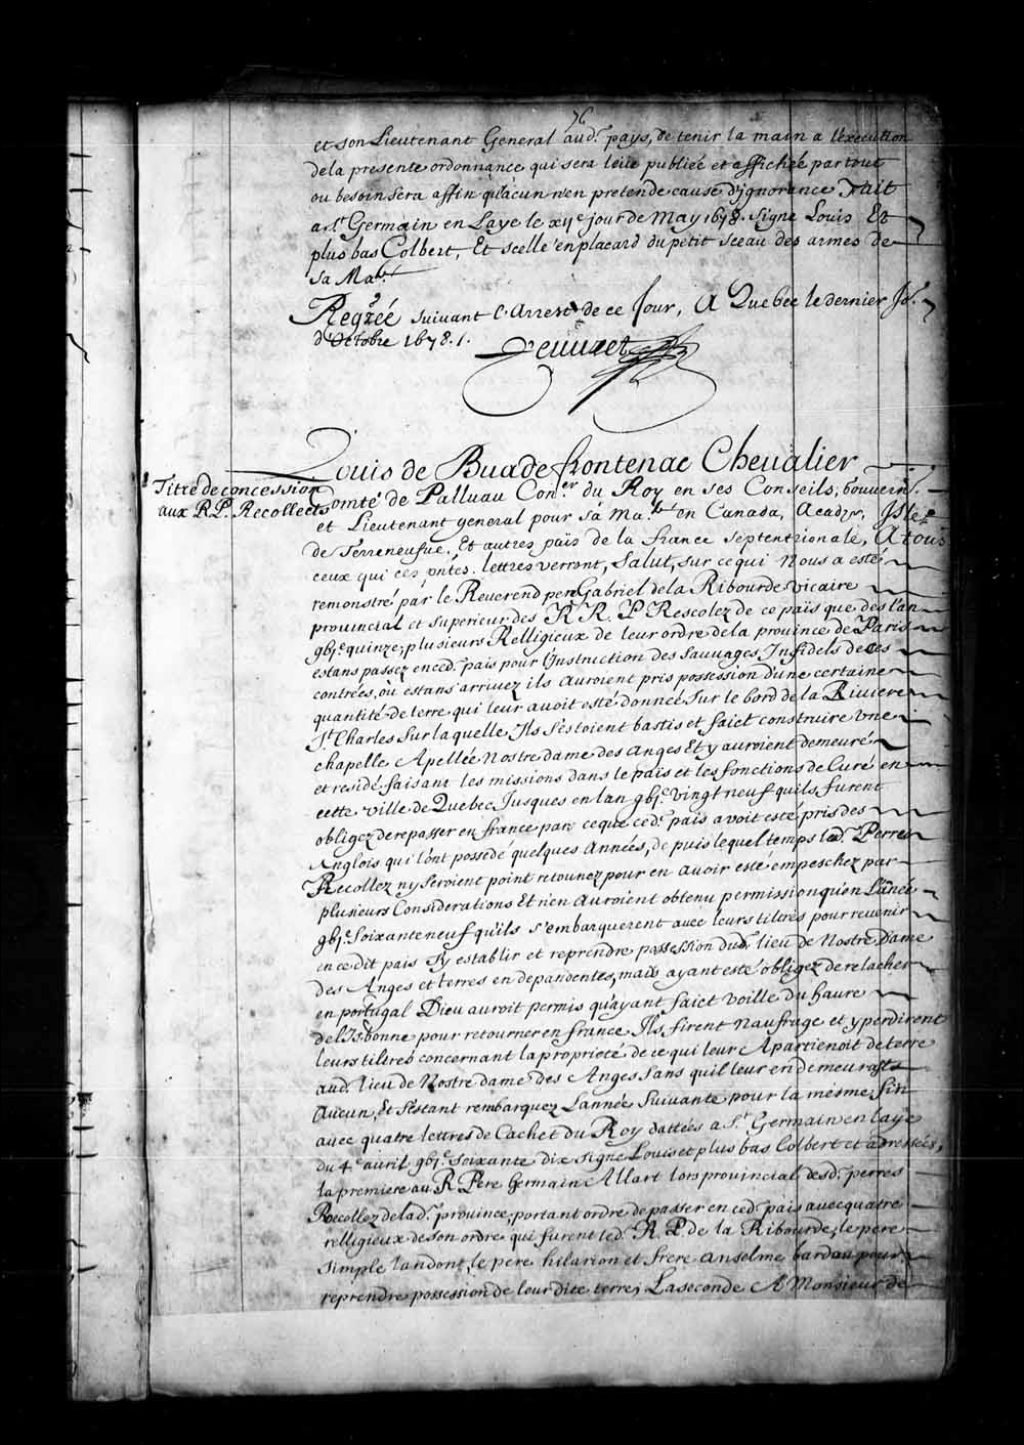 76
et son Lieutenant General aud. pays, de tenir la main a l'execution
de la presente ordonnance qui sera leüe publiée et affichée par tout
ou besoin sera affin qu'acun n'en pretende cause d'ignorance. Fait
a St. Germain en Laye le xije jour de May 1678. Signé Louis Et
plus bas Colbert, Et scellé en placard du petit sceau des armes de
sa Mate.
Regrée suivant l'Arrest de ce Jour, A Quebec le dernier Jr.
d'Octobre 1678 ./.
Peuuret
Louis de Buade frontenac Chevalier
Titre de concession
aux RP. Recollects
Comte de Palluau Coner. du Roy en ses Conseils, Gouvernr.
et Lieutenant general pour sa Mate. en Canada, Acadye, Isle
de Terreneufue, Et autres païs de la france septentrionale, A tous
ceux qui ces pntes. lettres verront, Salut, sur ce qui Nous a esté
remonstré par le Reverend pere Gabriel de la Ribourde vicaire
provincial et superieur des RR. P Rescolez de ce païs que dès l'an
gbje. quinze, plusieurs Relligieux de leur ordre de la province de Paris
estans passez en ced. pais pour l'Instruction des sauvages Infidels de ces
contrées, ou estans arrivez ils auroient pris possession d'une certaine
quantité de terre qui leur avoit esté donnée sur le bord de la Riviere
St. Charles sur laquelle Ils s'estoient bastis et faict construire une
chapelle Apellée Nostre dame des Anges Et y auroient demeuré
et residé faisant les missions dans le païs et les fonctions de Curé en
cette ville de Quebec Jusques en lan gbje. vingt neuf quils furent
obligez de repasser en france par ce que ced. pais avoit esté pris des
Anglois qui l'ont possedé quelques Années, de puis lequel temps led. Perres
Recollez ny seroient point retounez pour en avoir esté empeschez par
plusieurs Considerations Et n'en auroient obtenu permission qu'en L'année
gbje. soixante neuf qu'ils s'embarquerent avec leurs tiltres pour revenir
en ce dit pais s'y establir et reprendre possession dud. lieu de Nostre Dame
des Anges et terres en dependentes, mais ayant esté obligez de relacher
en portugal Dieu auroit permis qu'ayant faict voille du havre
de l'Isbonne pour retourner en france Ils firent naufrage et y perdirent
leurs tiltres concernant la proprieté de ce qui leur Apartienoit de terre
aud. lieu de Nostre dame des Anges sans quil leur en demeurast
Aucun, Et s'estant rembarquez L'année suivante pour la mesme fin
avec quatre lettres de Cachet du Roy dattées a St. Germain en laye
du 4e. avril gbje. soixante dix signé Louis et plus bas Colbert et adressées,
la premiere au R Pere Germain Allart lors provincial desd. perres
Recollez de lad. province, portant ordre de passer en ced. pais avec quatre
relligieux de son ordre qui furent led. R. P. de la Ribourde, le pere
Simple Landont, le pere hilarion et frere Anselme bardou pour
reprendre possession de leur dite terre, La seconde A Monsieur de